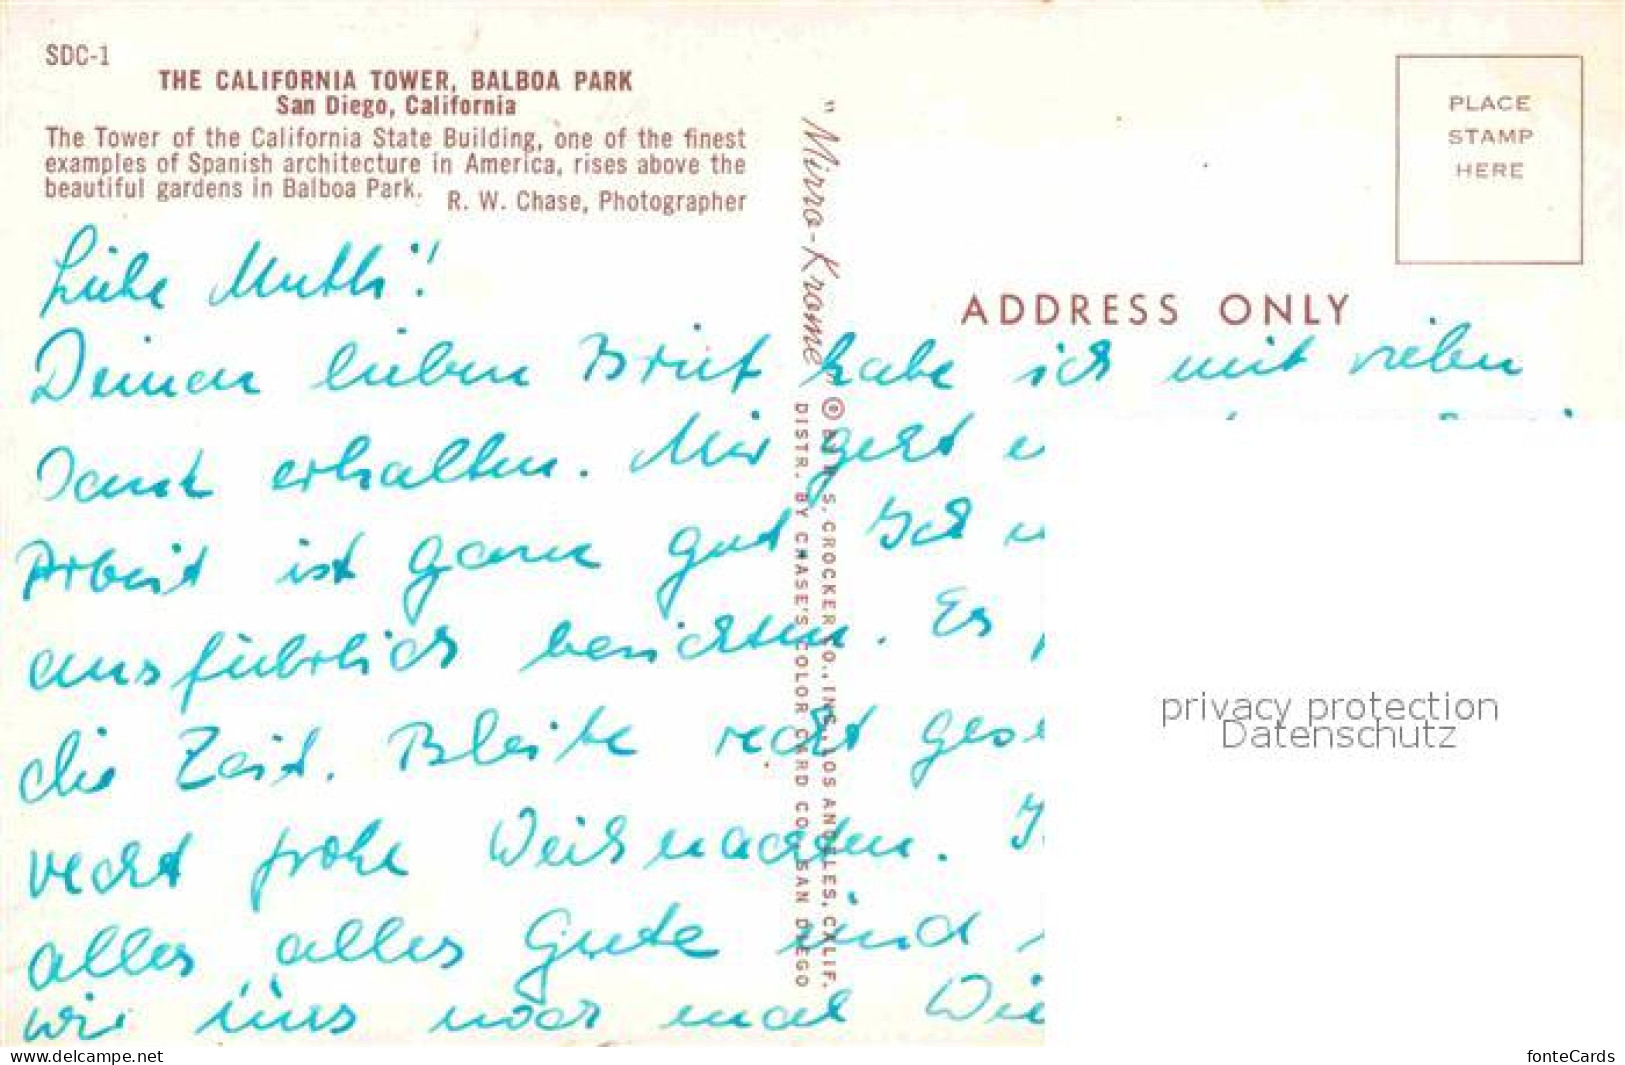 SDC-1
THE CALIFORNIA TOWER, BALBOA PARK
San Diego, California
The Tower of the California State Building, one of the finest
examples of Spanish architecture in America, rises above the
beautiful gardens in Balboa Park.
R. W. Chase, Photographer
PLACE
STAMP
HERE
ADDRESS ONLY
"Mirro-Krome"
© BY H. S. CROCKER CO., INC., LOS ANGELES, CALIF.
DISTR. BY CHASE'S COLOR CARD CO., SAN DIEGO
Liebe Mutti!
Deinen lieben Brief habe ich mit vielen
Dank erhalten. Mir geht
Arbeit ist ganz gut Ich
ausführlich berichten. Es
die Zeit. Bleibe recht
recht frohe Weihnachten.
alles alles Gute und
wir uns noch mal
privacy protection
Datenschutz
www.delcampe.net
fonteCards